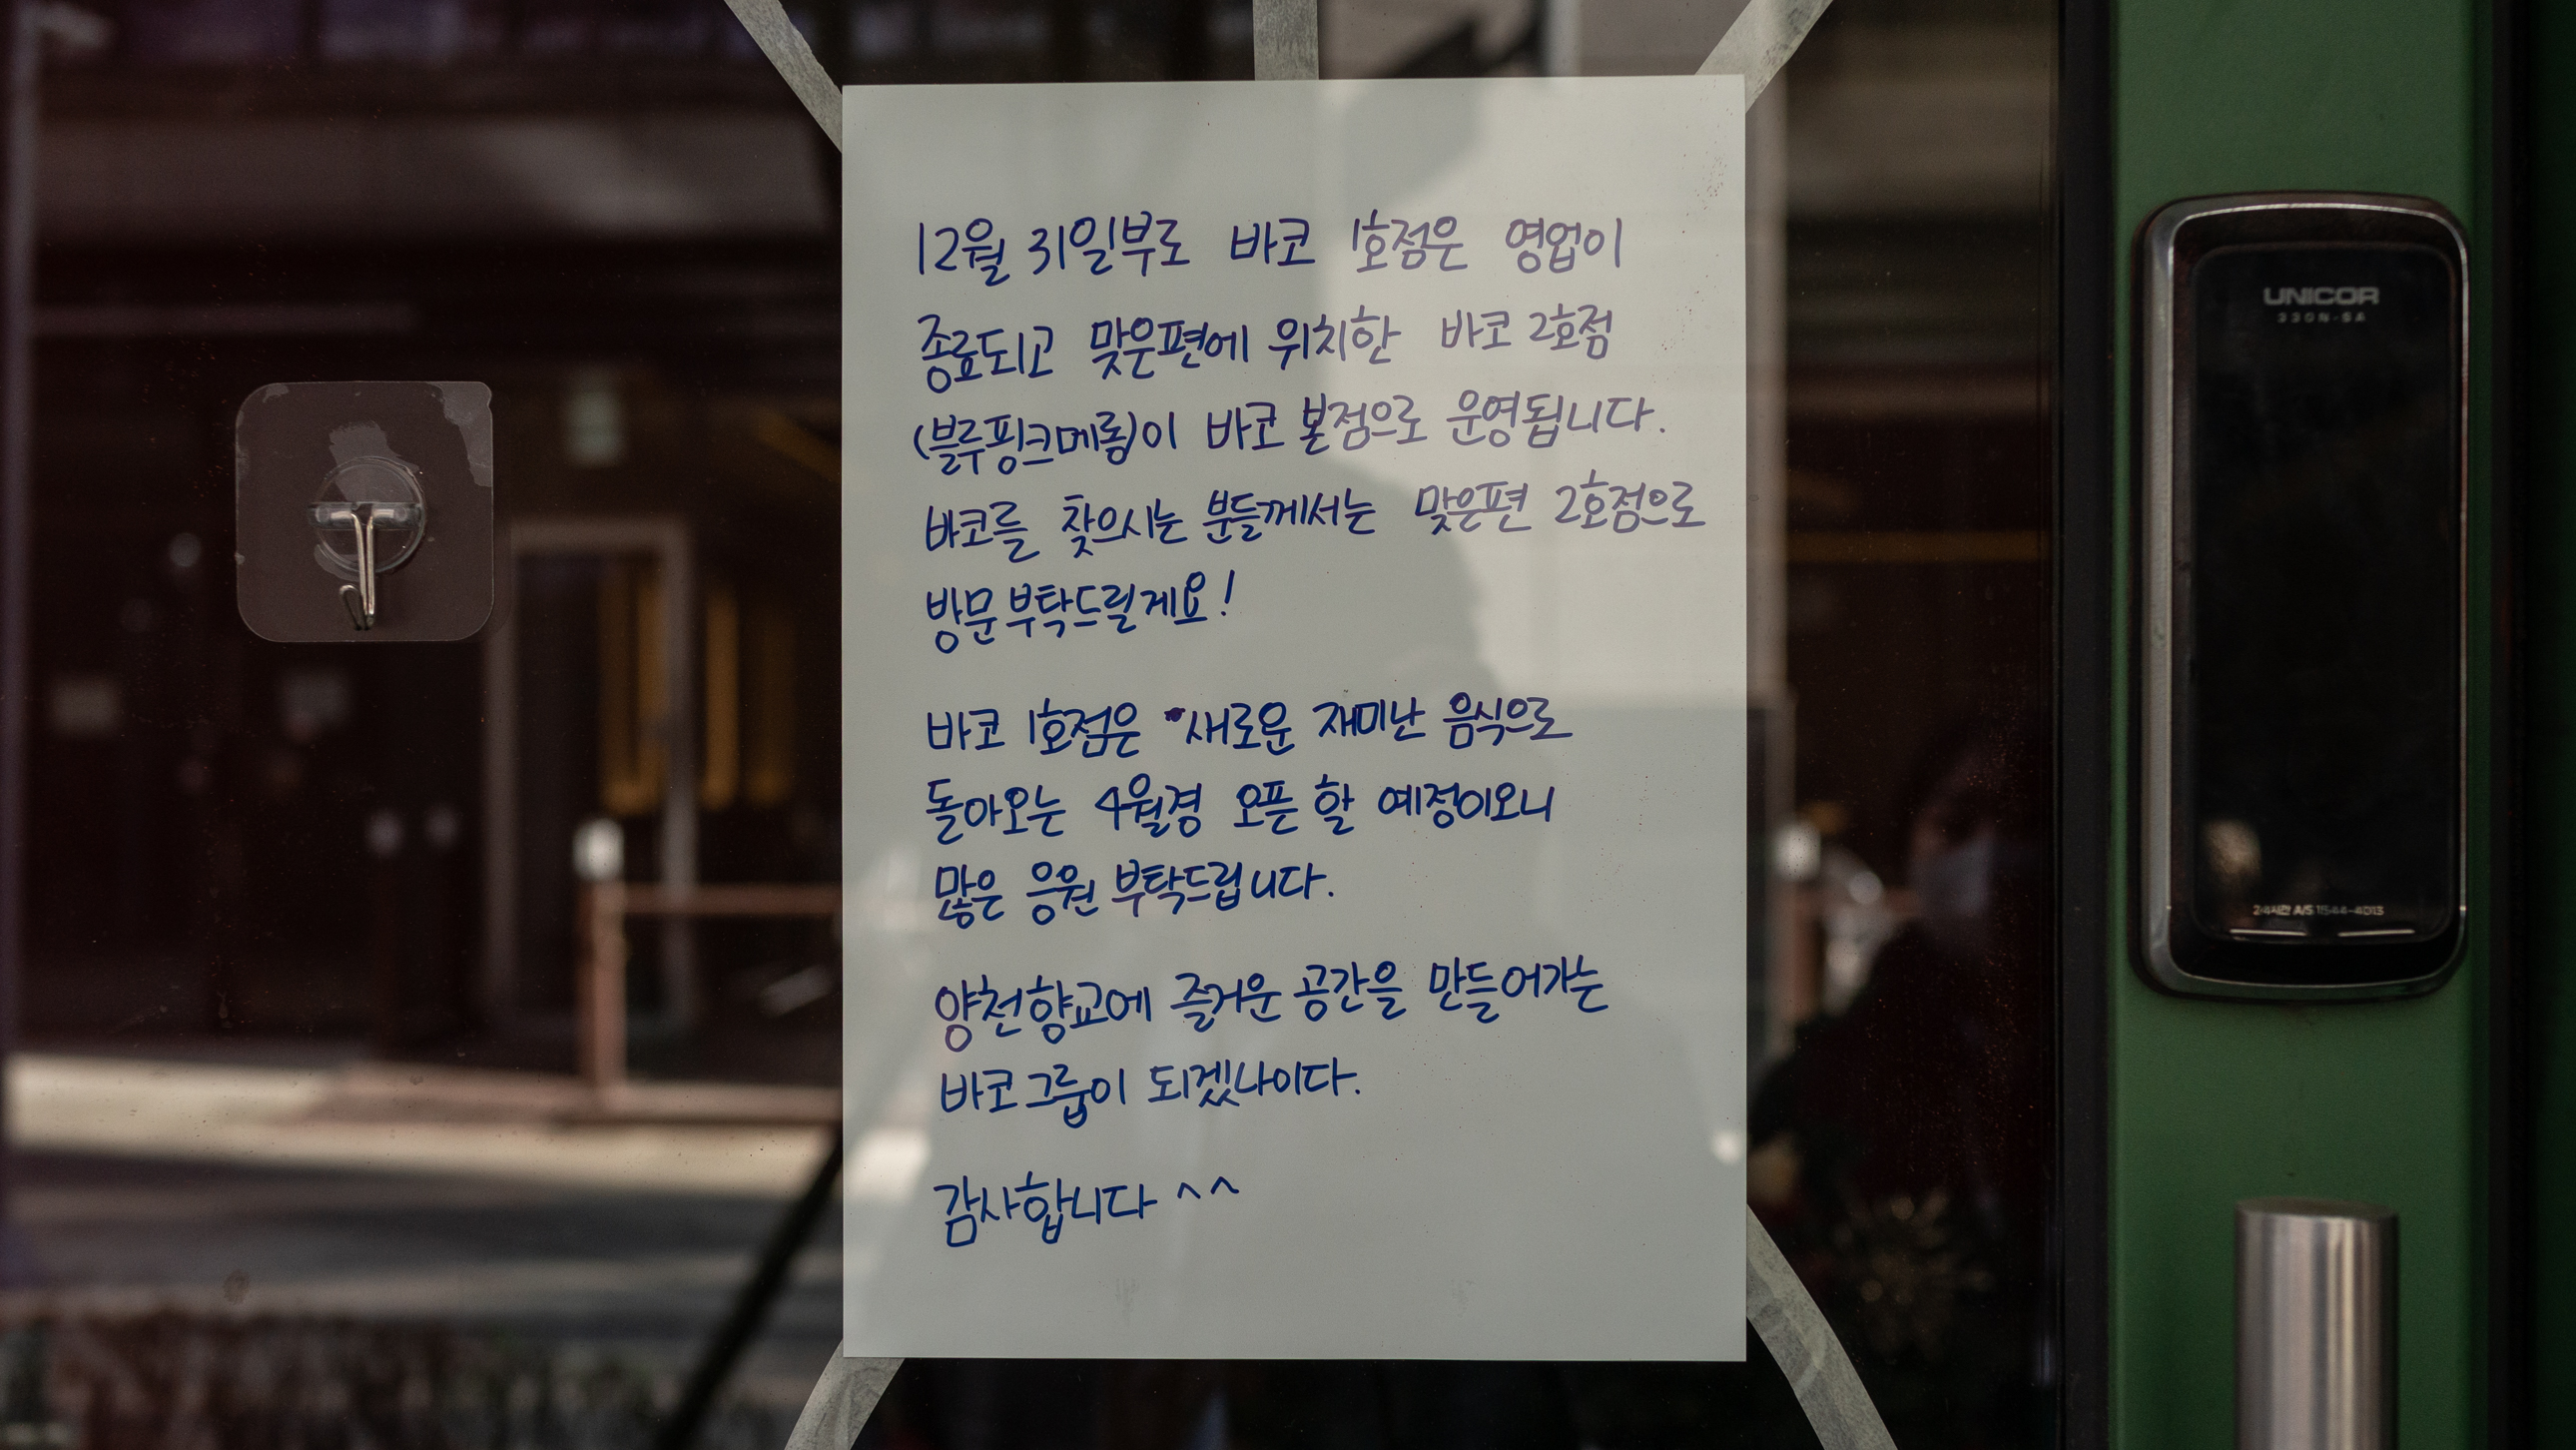 12월 31일부로 바코 1호점은 영업이
종료되고 맞은편에 위치한 바코 2호점
(블루핑크메롱)이 바코 본점으로 운영됩니다.
바코를 찾으시는 분들께서는 맞은편 2호점으로
방문 부탁드릴게요!
바코 1호점은 새로운 재미난 음식으로
돌아오는 4월경 오픈 할 예정이오니
많은 응원 부탁드립니다.
양천향교에 즐거운 공간을 만들어가는
바코그룹이 되겠나이다.
감사합니다 ^^
UNICOR
330N-SA
24시간 A/S 1544-4013